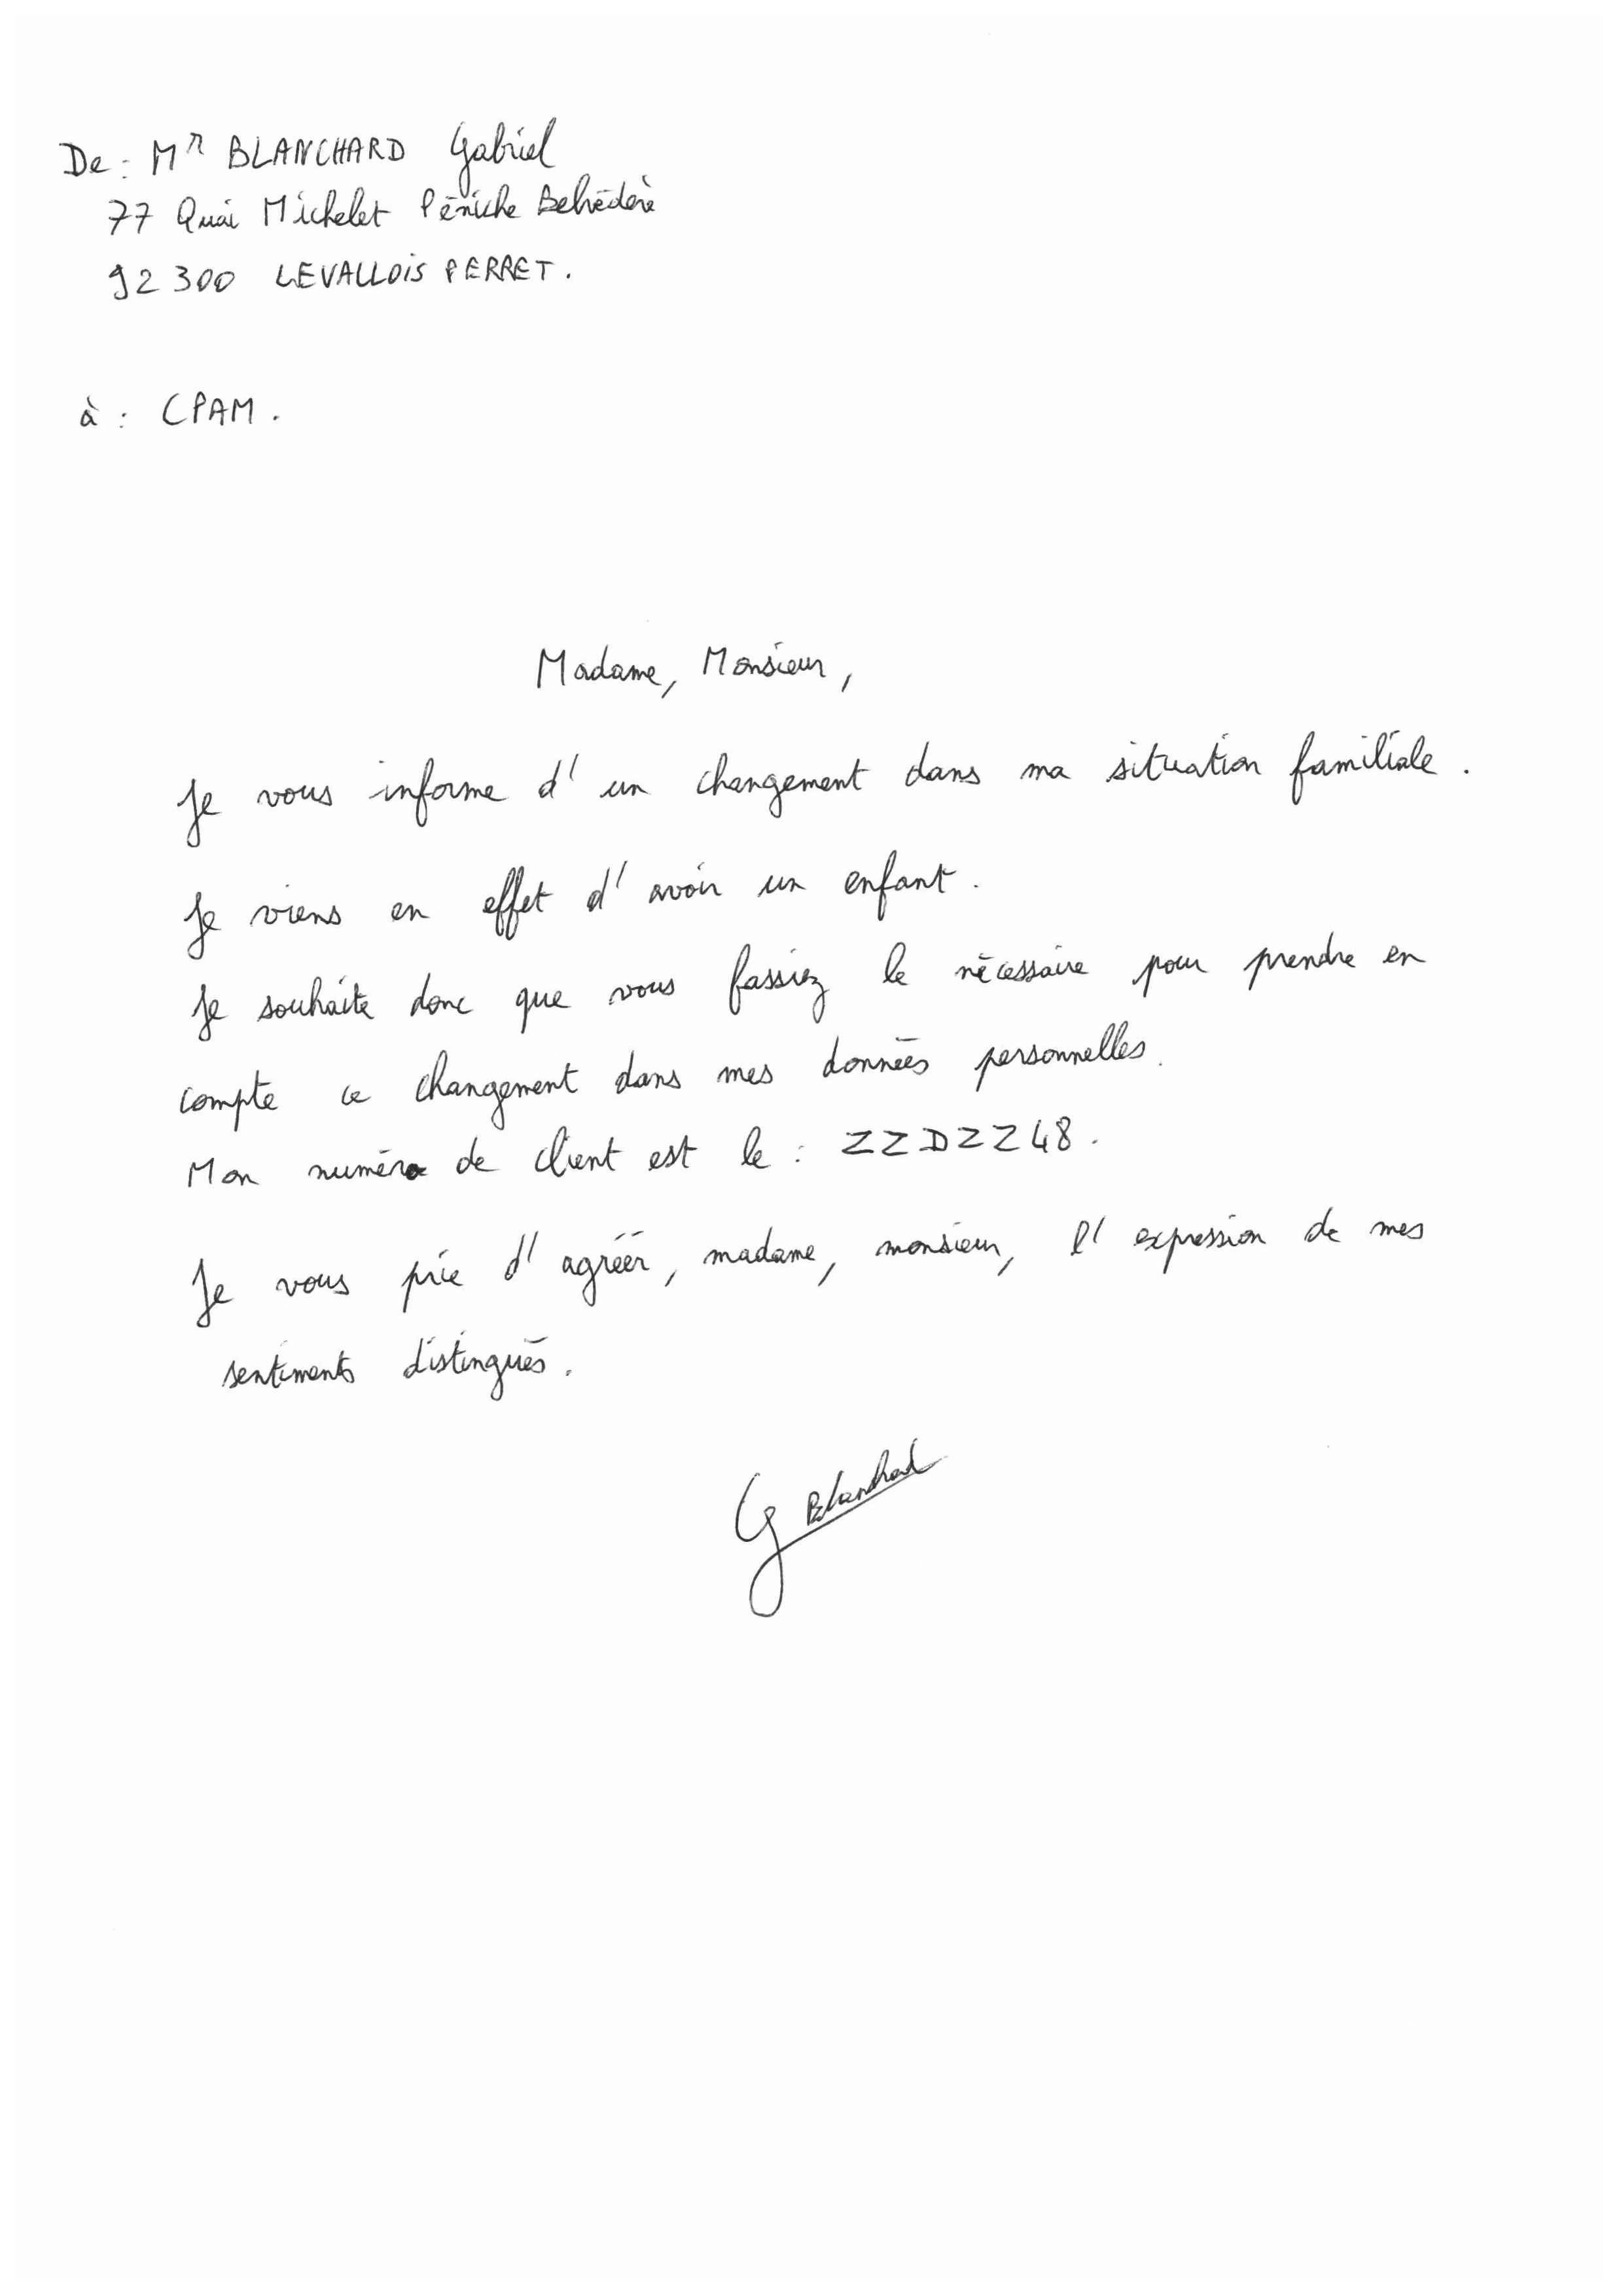 De : Mr BLANCHARD Gabriel
77 Quai Michelet Péniche Belvédère
92300 LEVALLOIS PERRET.
à : CPAM.
Madame, Monsieur,
Je vous informe d'un changement dans ma situation familiale.
Je viens en effet d'avoir un enfant.
Je souhaite donc que vous fassiez le nécessaire pour prendre en
compte ce changement dans mes données personnelles.
Mon numéro de client est le : ZZDZZ48.
Je vous prie d'agréer, madame, monsieur, l'expression de mes
sentiments distingués.
G Blanchard